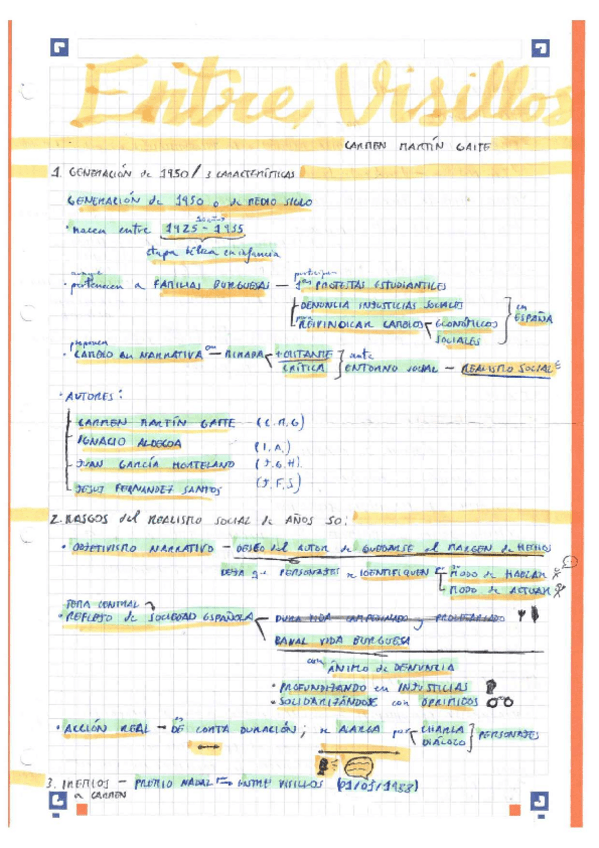 Entre Visillos
CARMEN MARTÍN GAITE
1. GENERACIÓN de 1950 / 3 CARACTERÍSTICAS
GENERACIÓN de 1950 o de MEDIO SIGLO
• nacen entre 1925 - 1935
etapa bélica en infancia
aunque participan
• pertenecen a FAMILIAS BURGUESAS — PROTESTAS ESTUDIANTILES
DENUNCIA INJUSTICIAS SOCIALES
para REIVINDICAR CAMBIOS ECONÓMICOS SOCIALES en ESPAÑA
proponen
• CAMBIO en NARRATIVA con — MIRADA + DISTANTE CRÍTICA ante ENTORNO SOCIAL — REALISMO SOCIAL
• AUTORES:
CARMEN MARTÍN GAITE (C.M.G)
IGNACIO ALDECOA (I.A.)
JUAN GARCÍA HORTELANO (J.G.H).
JESÚS FERNANDEZ SANTOS (J.F.S)
2. RASGOS del REALISMO SOCIAL de AÑOS 50:
• OBJETIVISMO NARRATIVO — DESEO del AUTOR de QUEDARSE al MARGEN de HECHOS
DEJA q PERSONAJES se IDENTIFIQUEN por MODO de HABLAR
MODO de ACTUAR
TEMA CENTRAL
• REFLEJO de SOCIEDAD ESPAÑOLA DURA VIDA CAMPESINADO y PROLETARIADO
BANAL VIDA BURGUESA
con ÁNIMO de DENUNCIA
• PROFUNDIZANDO en INJUSTICIAS
• SOLIDARIZÁNDOSE con OPRIMIDOS
• ACCIÓN REAL — es DE CORTA DURACIÓN; se ALARGA por CHARLA DIÁLOGO PERSONAJES
3. PREMIOS — PREMIO NADAL ENTRE VISILLOS
a CARMEN